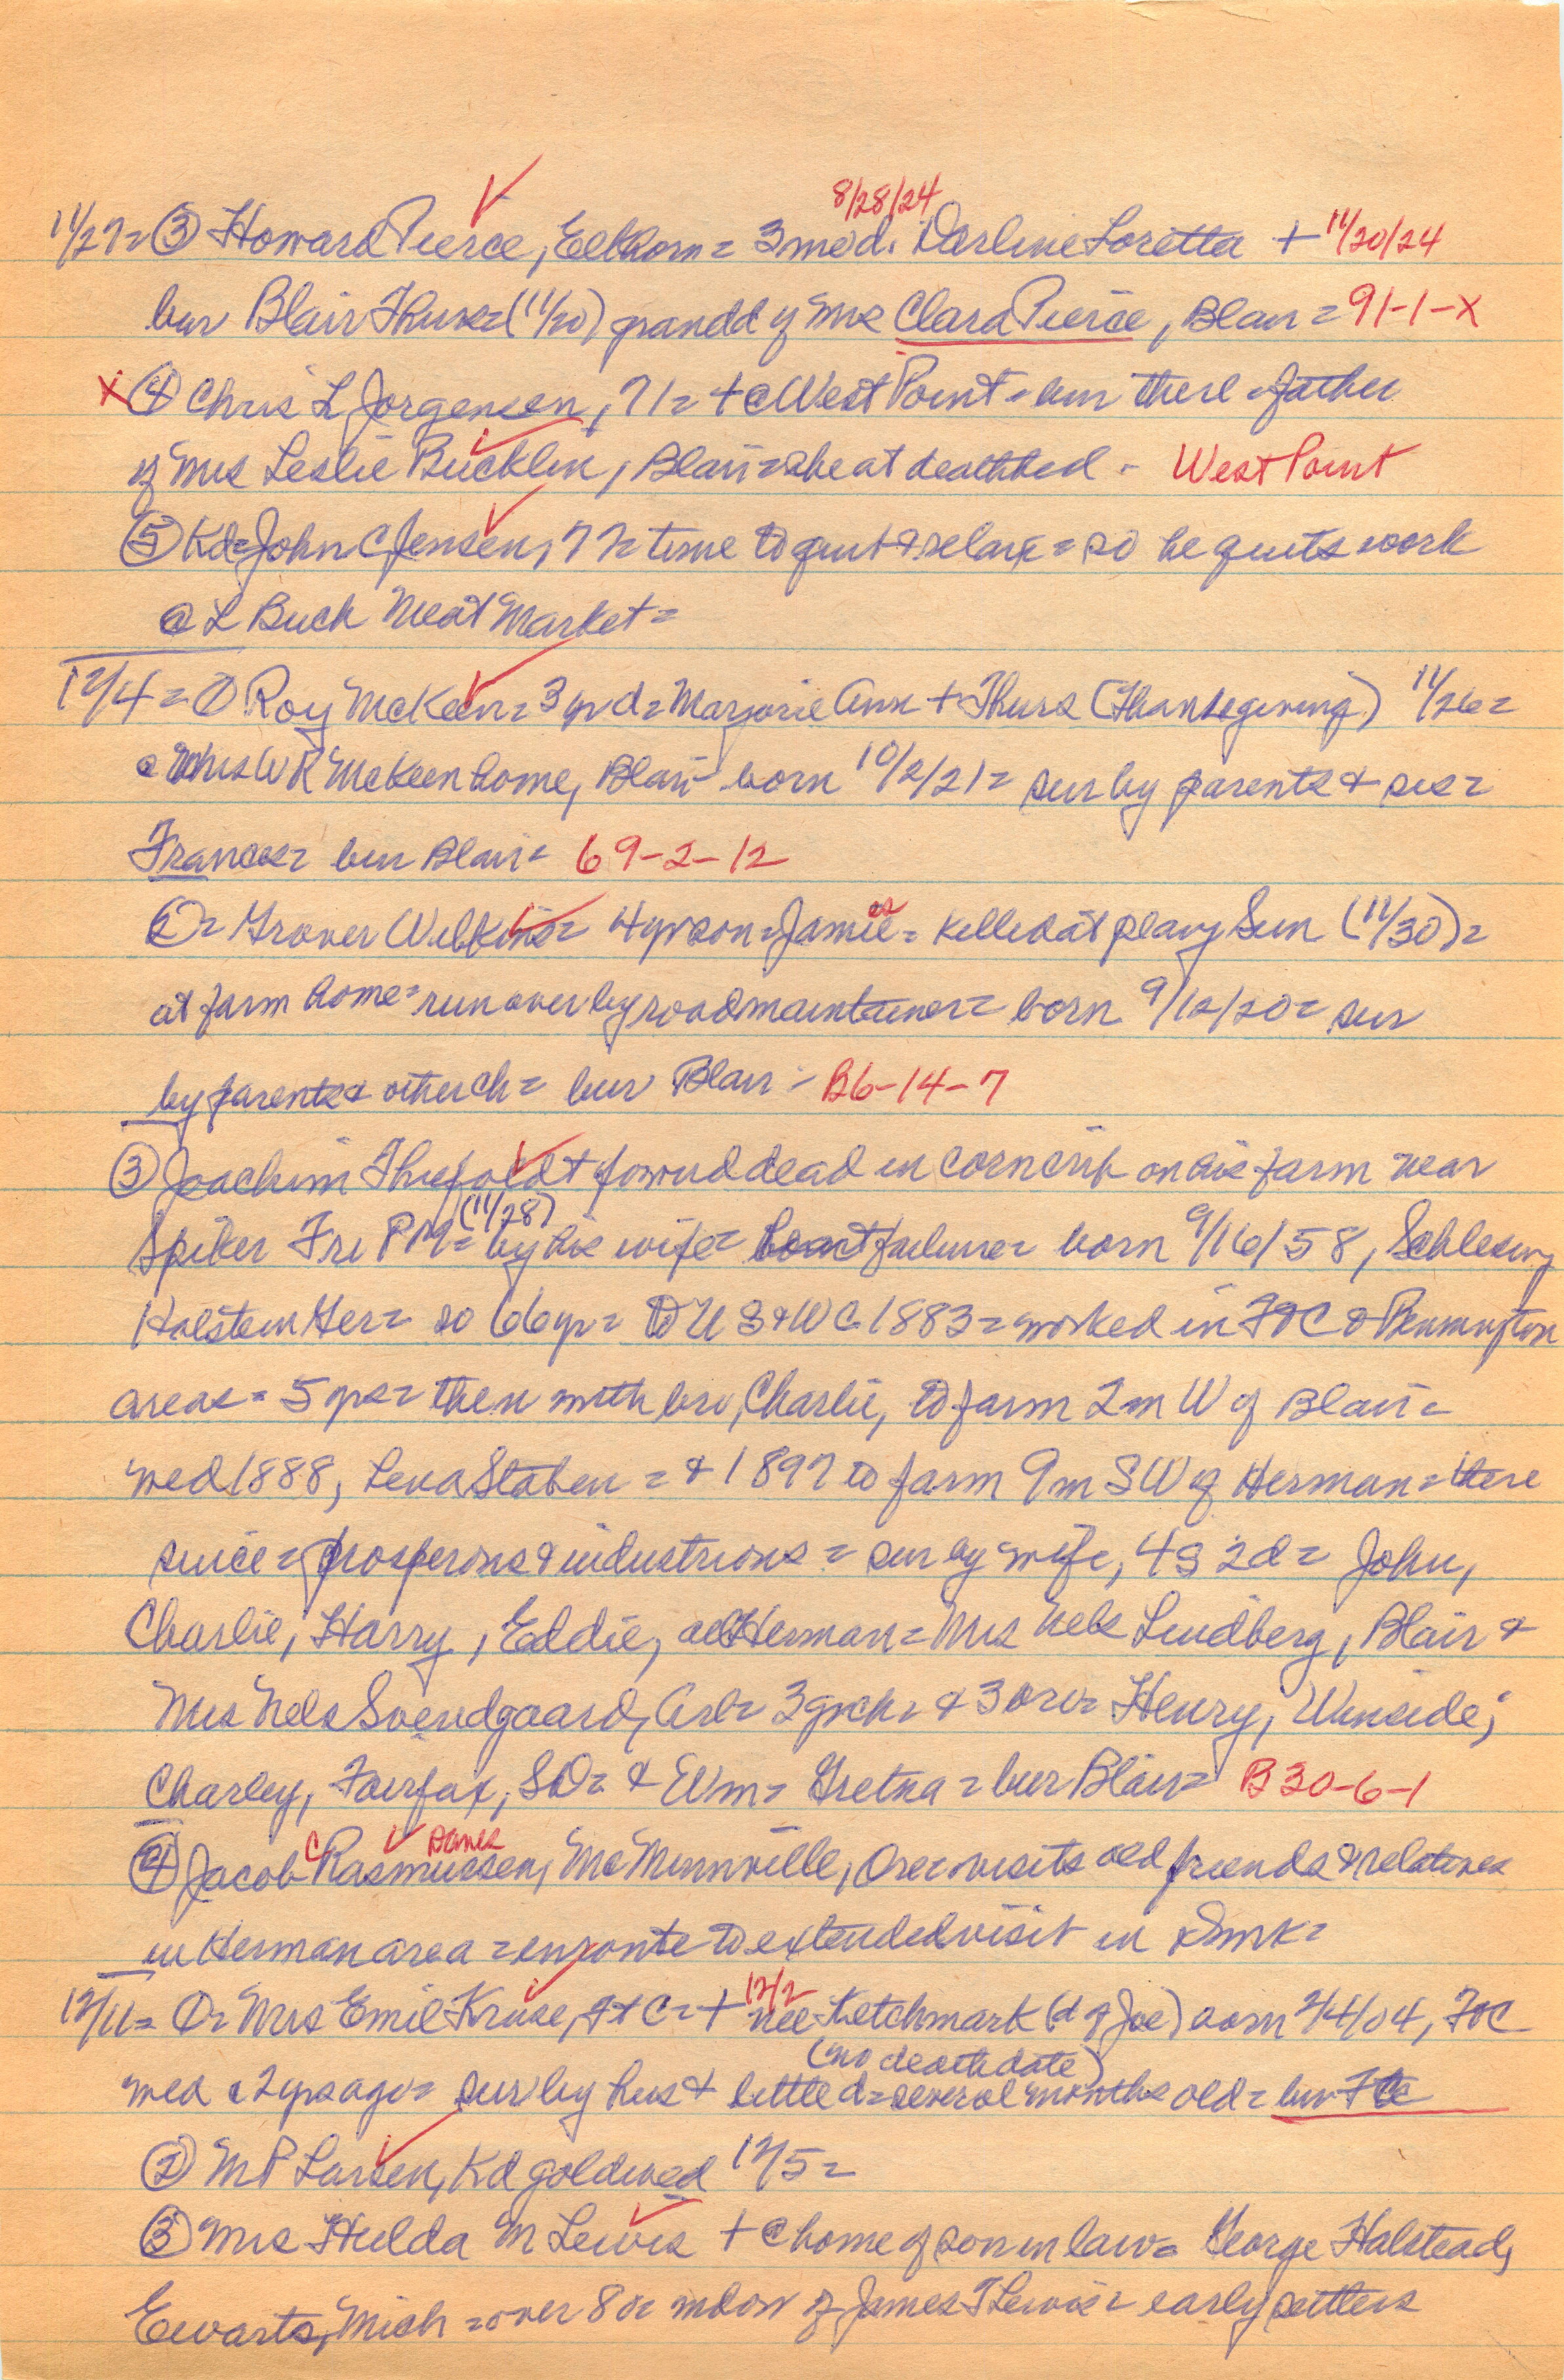 8/28/24
11/27 = ③ Howard Pierce, Elkhorn = 3 mo d. Darline Loretta + 11/20/24
bur Blair Thurs = (11/20) grandd of Mrs Clara Pierce, Blair = 91-1-X
X ④ Chris L Jorgensen, 71 = + @ West Point = bur there = father
of Mrs Leslie Bucklin, Blair = she at deathbed - West Point
⑤ Kd = John C Jensen, 77 = time to quit & relax = so he quits work
@ L Buck Meat Market =
12/4 = ① Roy McKeen = 3 yr d = Marjorie Ann + Thurs (Thanksgiving) 11/26 =
@ Mrs W R McKeen home, Blair born 10/2/21 = sur by parents & sis =
Frances = bur Blair = 69-2-12
② = Grover Wilkins = 4 yr son = Jamie es = killed at play Sun (11/30) =
at farm home = run over by road maintainer = born 9/12/20 = sur
by parents & other ch = bur Blair - B6-14-7
③ Joachim Thiefoldt found dead in corn crib on his farm near
Spiker Fri PM = (11/28) by his wife = heart failure = born 9/16/58, Schleswig
Holstein Ger = so 66 yr = to U S & W C 1883 = worked in Ft C & Bennington
areas = 5 yrs = then with bro, Charlie, to farm 2 m W of Blair =
wed 1888, Lena Staben = & 1897 to farm 9 m S W of Herman = there
since = prosperous & industrious = sur by wife, 4 s 2 d = John,
Charlie, Harry, Eddie, all Herman = Mrs Nels Lindberg, Blair &
Mrs Nels Svendgaard, Arl = 3 grch = & 3 bro = Henry, Winside;
Charley, Fairfax, SD = & Wm = Gretna = bur Blair = B 30-6-1
④ Jacob C Rasmussen, McMinnville, Ore = visits old friends & relatives
in Herman area = enroute to extended visit in Dmrk =
12/11 = ① = Mrs Emil Kruse, Ft C = + 12/2 nee Ketchmark (d of Joe) born 2/4/04, Ft C
(no death date)
wed @ 2 yrs ago = sur by hus & little d = several months old = bur Ft C
② M P Larsen, Kd gold wed 12/5 =
③ Mrs Hulda M Lewis + @ home of son in law = George Halstead,
Evarts, Mich = over 80 = widow of James T Lewis = early settlers